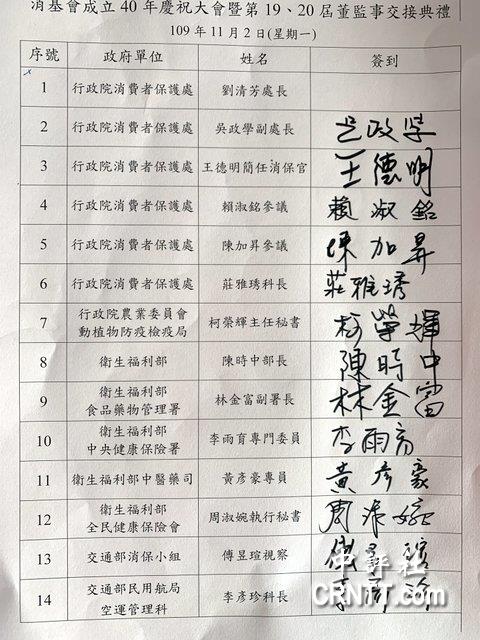 消基會成立40年慶祝大會暨第19、20屆董監事交接典禮
109年11月2日(星期一)
序號 政府單位 姓名 簽到
1 行政院消費者保護處 劉清芳處長
2 行政院消費者保護處 吳政學副處長 吳政學
3 行政院消費者保護處 王德明簡任消保官 王德明
4 行政院消費者保護處 賴淑銘參議 賴淑銘
5 行政院消費者保護處 陳加昇參議 陳加昇
6 行政院消費者保護處 莊雅琇科長 莊雅琇
7 行政院農業委員會
動植物防疫檢疫局 柯榮輝主任秘書 柯榮輝
8 衛生福利部 陳時中部長 陳時中
9 衛生福利部
食品藥物管理署 林金富副署長 林金富
10 衛生福利部
中央健康保險署 李雨育專門委員 李雨育
11 衛生福利部中醫藥司 黃彥豪專員 黃彥豪
12 衛生福利部
全民健康保險會 周淑婉執行秘書 周淑婉
13 交通部消保小組 傅昱瑄視察
14 交通部民用航局
空運管理科 李彥珍科長
中評社
CRNTT.com